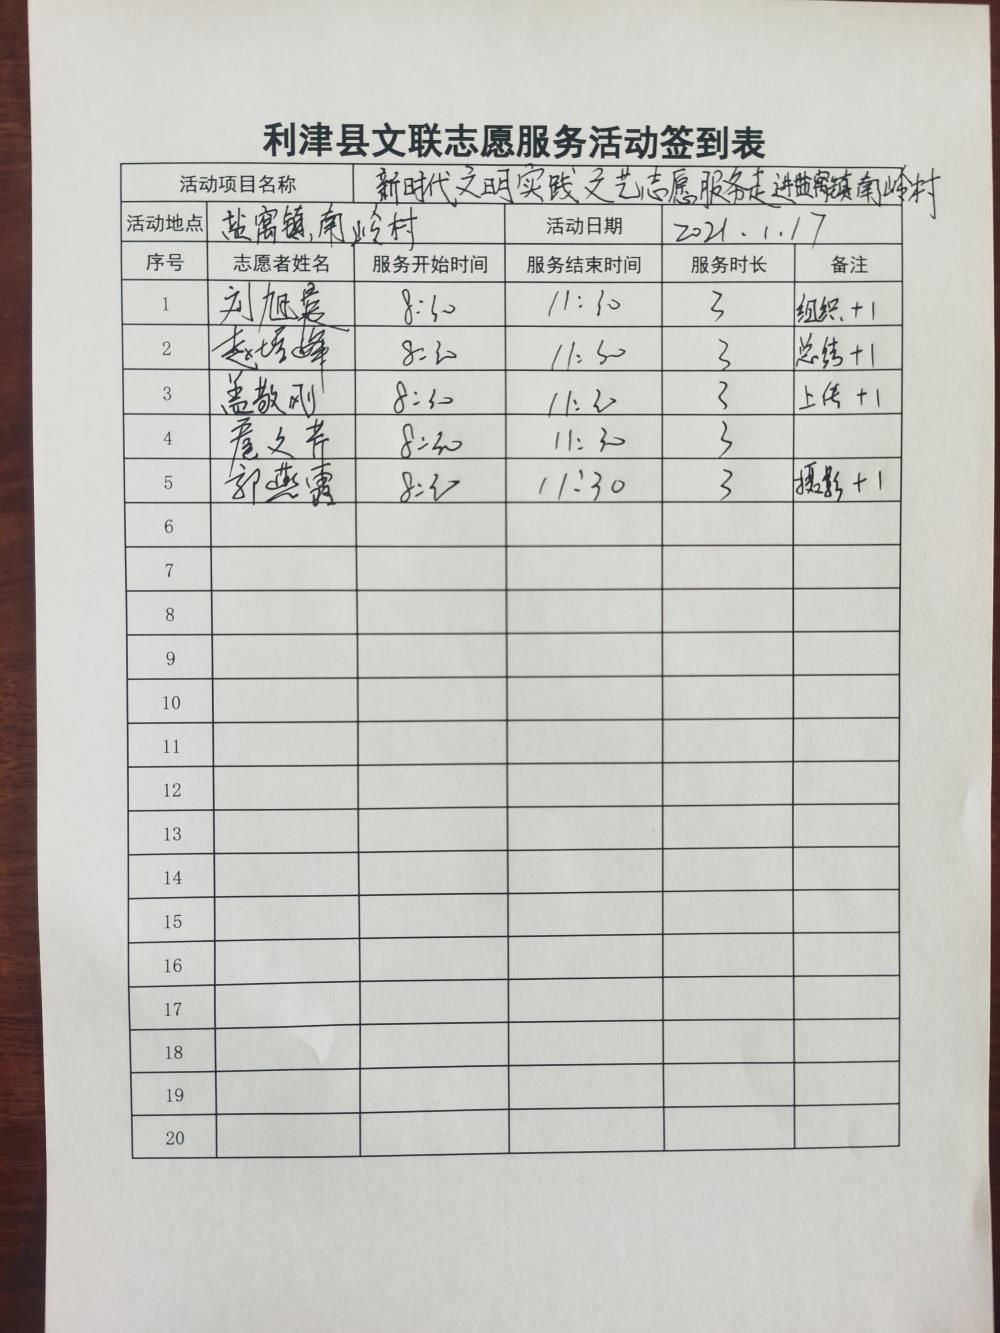 利津县文联志愿服务活动签到表
活动项目名称 新时代文明实践文艺志愿服务走进盐窝镇南岭村
活动地点 盐窝镇南岭村 活动日期 2021.1.17
序号 志愿者姓名 服务开始时间 服务结束时间 服务时长 备注
1 刘旭 8:30 11:30 3 组织+1
2 赵培峰 8:30 11:30 3 总结+1
3 盖敬刚 8:30 11:30 3 上传+1
4 文芹 8:30 11:30 3
5 郭燕霞 8:30 11:30 3 摄影+1
6
7
8
9
10
11
12
13
14
15
16
17
18
19
20